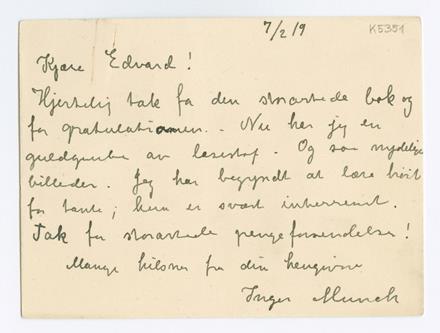 7/2 19
K5351
Kjære Edvard!
Hjertelig tak fa den storartede bok og
for gratulationen. - Nu har jeg en
guldgrube av læsestof. Og saa nydelige
billeder. Jeg har begyndt at læse høit
for tante; hun er svært interessert.
Tak for storartede pengeforsendelse!
Mange hilsner fra din hengivne
Inger Munch